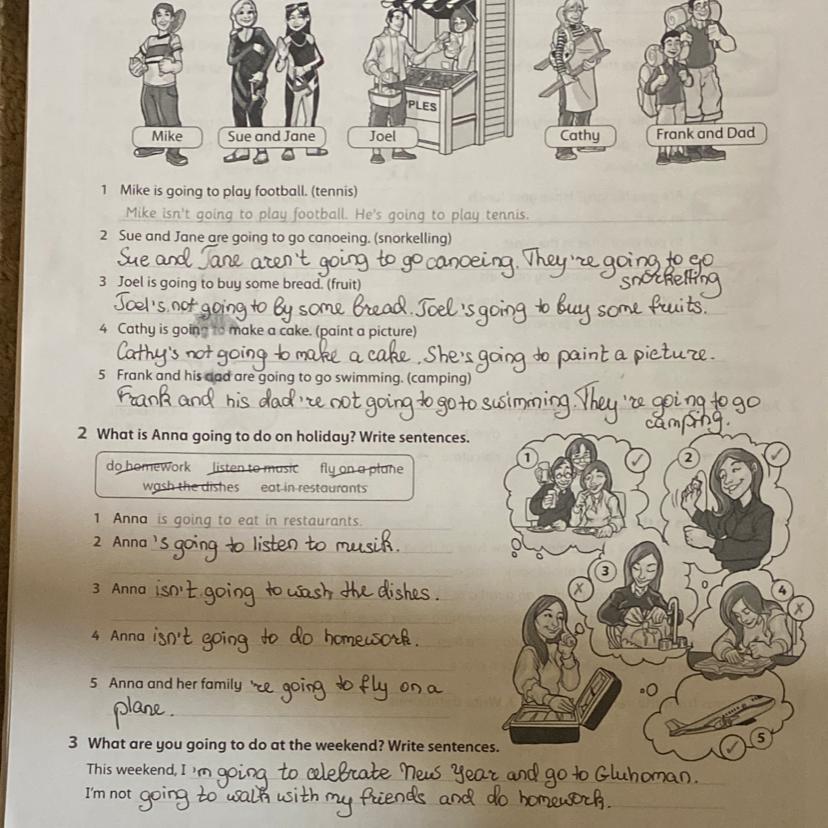 PLES
Mike
Sue and Jane
Joel
Cathy
Frank and Dad
1 Mike is going to play football. (tennis)
Mike isn't going to play football. He's going to play tennis.
2 Sue and Jane are going to go canoeing. (snorkelling)
Sue and Jane aren't going to go canoeing. They're going to go
snorkelling
3 Joel is going to buy some bread. (fruit)
Joel's not going to by some bread. Joel's going to buy some fruits.
4 Cathy is going to make a cake. (paint a picture)
Cathy's not going to make a cake. She's going to paint a picture.
5 Frank and his dad are going to go swimming. (camping)
Frank and his dad're not going to go to swimming. They're going to go
camping.
2 What is Anna going to do on holiday? Write sentences.
do homework listen to music fly on a plane
wash the dishes eat in restaurants
1 Anna is going to eat in restaurants.
2 Anna 's going to listen to musik.
3 Anna isn't going to wash the dishes.
4 Anna isn't going to do homework.
5 Anna and her family 're going to fly on a
plane.
1
2
3
4
5
3 What are you going to do at the weekend? Write sentences.
This weekend, I 'm going to celebrate News Year and go to Gluhoman.
I'm not going to walk with my friends and do homework.